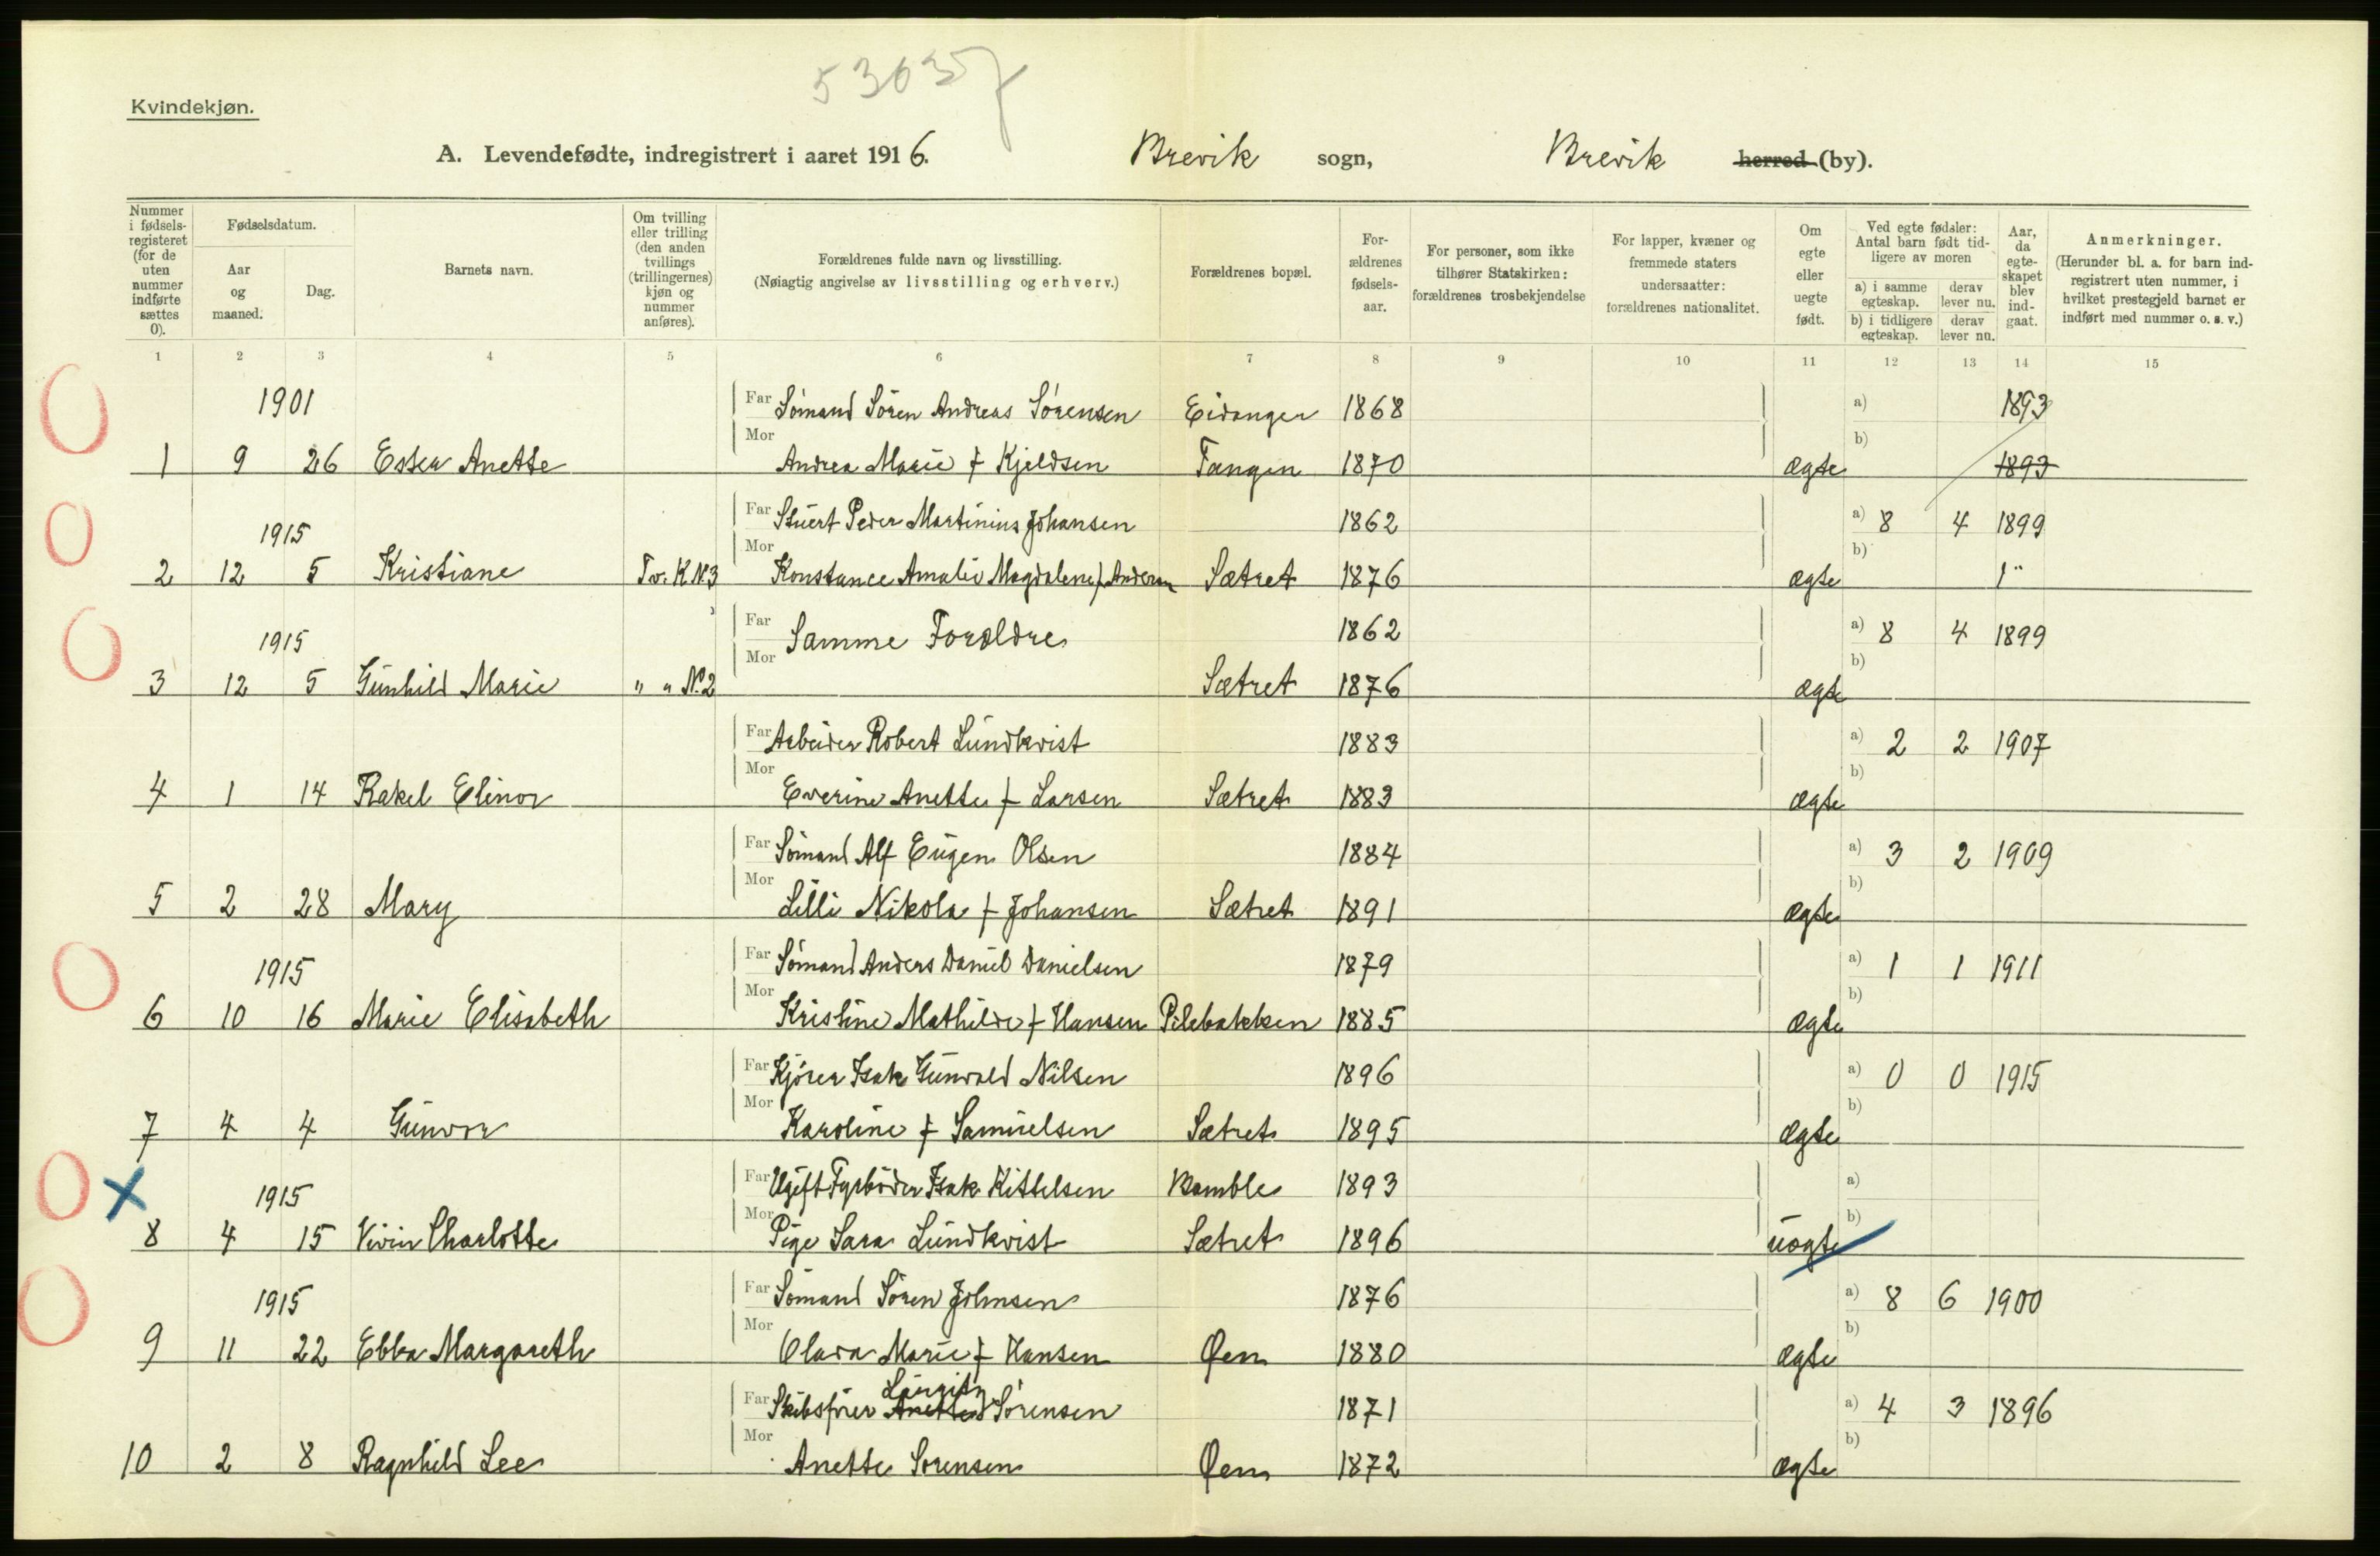 53037
Kvindekjøn.
A. Levendefødte, indregistrert i aaret 1916. Brevik sogn, Brevik herred (by).
Nummer i fødselsregisteret (for de uten nummer indførte sættes 0).
Fødselsdatum.
Aar og maaned.
Dag.
Barnets navn.
Om tvilling eller trilling (den anden tvillings (trillingernes) kjøn og nummer anføres).
Forældrenes fulde navn og livsstilling.
(Nøiagtig angivelse av livsstilling og erhverv.)
Forældrenes bopæl.
Forældrenes fødselsaar.
For personer, som ikke tilhører Statskirken: forældrenes trosbekjendelse
For lapper, kvæner og fremmede staters undersaatter: forældrenes nationalitet.
Om egte eller uegte født.
Ved egte fødsler: Antal barn født tidligere av moren
a) i samme egteskap. derav lever nu.
b) i tidligere egteskap. derav lever nu.
Aar, da egteskapet blev indgaat.
Anmerkninger.
(Herunder bl. a. for barn indregistrert uten nummer, i hvilket prestegjeld barnet er indført med nummer o. s. v.)
1 2 3 4 5 6 7 8 9 10 11 12 13 14 15
1901 Far Sømand Søren Andreas Sørensen Eidanger 1868 a) 1893
1 9 26 Ester Anette Mor Andrea Marie f Kjeldsen Tangen 1870 ægte b) 1893
1915 Far Stuert Peder Martinius Johansen 1862 a) 8 4 1899
2 12 5 Kristiane Tv. K N.3 Mor Konstance Amalie Magdalene f Andersen Sætret 1876 ægte b) 1"
1915 Far Samme Forældre 1862 a) 8 4 1899
3 12 5 Gunhild Marie " " N.2 Mor Sætret 1876 ægte b)
Far Arbeider Robert Lundkvist 1883 a) 2 2 1907
4 1 14 Rakel Elinor Mor Everine Anette f Larsen Sætret 1883 ægte b)
Far Sømand Alf Eugen Olsen 1884 a) 3 2 1909
5 2 28 Mary Mor Lilli Nikola f Johansen Sætret 1891 ægte b)
1915 Far Sømand Anders Daniel Danielsen 1879 a) 1 1 1911
6 10 16 Marie Elisabeth Mor Kristine Mathilde f Hansen Pilebakken 1885 ægte b)
Far Kjører Isak Gunvald Nilsen 1896 a) 0 0 1915
7 4 4 Gunvor Mor Karoline f Samuelsen Sætret 1895 ægte b)
1915 Far Ugift Fyrbøder Isak Kittelsen Bamble 1893 a)
8 4 15 Vivin Charlotte Mor Pige Sara Lundkvist Sætret 1896 uægte b)
1915 Far Sømand Søren Johnsen 1876 a) 8 6 1900
9 11 22 Ebba Margareth Mor Clara Marie f Hansen Øen 1880 ægte b)
Far Skibsfører Anette Sørensen 1871 a) 4 3 1896
10 2 8 Ragnhild Lee Mor Anette Sørensen Øen 1872 ægte b)